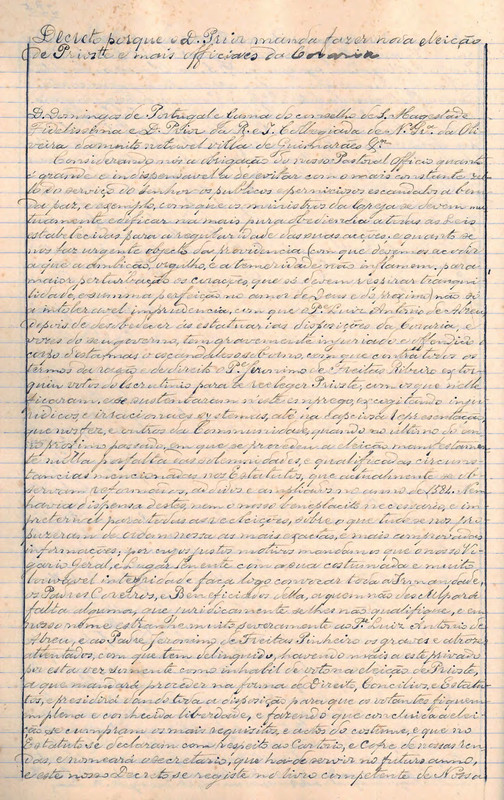 Decreto porque o D. Prior manda fazer nova eleição
de Prioste e mais officiaes da Coraria
D. Domingos de Portugal e Gama do conselho de S. Magestade
Fidelissima e D. Prior da R. e I. Collegiada de N. Srª. da Oli
veira da muito notavel villa de Guimarães &ª
Considerando nós a obrigação do nosso Pastoral Officio quanto
é grande e indispensavel a de evitar com o mais constante ze
lo do serviço do Senhor os publicos e perniciosos escandalos a bem
da paz, e exemplo, com que os ministros da Egreja se devem mu
tuamente edificar na mais pura obediencia a todas as Leis
estabelecidas para a regularidade das suas acções, e quanto se
nos faz urgente objecto da providencia (em que devemos acudir
a que a ambição, orgulho, e a temeridade não inflamem, para
maior perturbação os corações, que só devem respirar tranqui
lidade, e summa perfeição no amor de Deus e do proximo) não só
a intoleravel imprudencia, com que o Pe. Luiz Antonio de Abreu
depois de desobedecer ás estatuarias disposições da Coraria, e
vozes do seu governo, tem gravemente injuriado
corpo d'esta, mas o escandaloso soborno, com que contra todos os
termos da razão e de direito o Pe. Jeronimo de Freitas Ribeiro extor
quiu votos do Escrutinio para se reeleger Prioste, em os que n'elle
ficaram, e se sustentarem n'este emprego, excogitando inju
ridicos, e irracionaes systemas, até na capciosa representação,
que nos fez, e outros da Communidade, quando no ultimo do an
no proximo passado, em que se procedeu a eleição manifestamen
te nulla por falta das solemnidades, e qualificadas circums
tancias mencionadas nos Estatutos, que actualmente se ob
servam reformados, aditos e ampliados no anno de 1581. Nem
havia dispensa destes, nem o nosso beneplacito necessario, e in
preterivel para todas as reeleições, sobre o que tudo se nos pro
puzeram de ordem nossa as mais exactas, e mais comprovadas
informações; por cujos justos motivos mandamos que o nosso Vi
gario Geral, e Lugar Tenente com a sua costumada e muito
louvavel integridade faça logo convocar toda a Irmandade,
os Padres Coreiros, e Beneficiados della, a quem não desculpará
falta alguma, que juridicamente se lhes não qualifique, e em
nosso nome estranhe muito severamente ao Pe. Luiz Antonio de
Abreu, e ao Padre Jeronimo de Freitas Pinheiro os graves e atrozes
attentados, com que tem delinquido, havendo mais a este privado
por esta vez sómente como inhabil de voto na eleição de Prioste,
a que mandará proceder na forma de Direito, Concilios, e Estatu
tos, e presidirá dando toda a disposição para que os votantes fiquem
em plena e conhecida liberdade, e fazendo que concluida a elei
ção se cumpram os mais requisitos, e actos do costume, e que no
Estatuto se declaram com respeito ao Cartorio, e Cofre de nossas ren
das, e nomeará o Secretario, que ha de servir no futuro anno,
e este nosso Decreto se registe no livro competente de Nossa